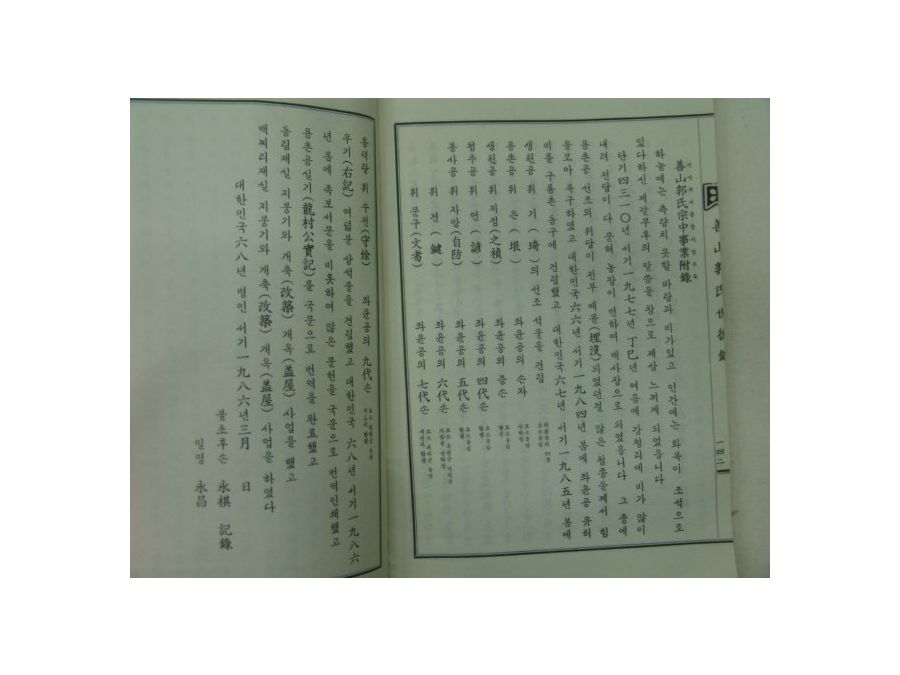 善山郭氏世德錄
一四二
善山郭氏宗中事業附錄
하늘에는 측량치 못할 바람과 비가있고 인간에는 화복이 조석으로
있다하신 제갈무후의 말씀을 참으로 재삼 느끼게 되었읍니다
단기四三一〇년 서기一九七七년 丁巳년 여름에 강청리에 비가 많이
내려 전답이 다 묻혀 농장이 변하여 백사장으로 되었읍니다 그 중에
용촌공 선조의 위답이 전부 매몰(埋沒)되었던걸 많은 첨종들께서 힘
을모아 복구하였고 대한민국六六년 서기一九八四년 봄에 좌윤공 유허
비를 구룡촌 동구에 건립했고 대한민국六七년 서기一九八五년 봄에
생원공 휘 기(琦)의 선조 석물을 건립
용촌공 휘 은(垠) 좌윤공의 손자
생원공 휘 지정(之禎) 좌윤공의 증손
첨추공 휘 언(諺) 좌윤공의 四代손
봉사공 휘 자방(自防) 좌윤공의 五代손
휘 건(鍵) 좌윤공의 六代손
휘 문구(文耉) 좌윤공의 七代손
통덕랑 휘 수전(守烇) 좌윤공의 九代손
우기(右記) 여덟분 상석물을 건립했고 대한민국 六八년 서기一九八六
년 봄에 족보서문을 비롯하여 많은 문헌을 국문으로 번역인쇄했고
용촌공실기(龍村公實記)를 국문으로 번역을 완료했고
동림재실 지붕기와 개축(改築)개옥(盖屋)사업을 했고
백찌리재실 지붕기와 개축(改築)개옥(盖屋)사업을 하였다
대한민국六八년 병인 서기一九八六년三月 日
불초후손 永祺 記錄
일명 永昌